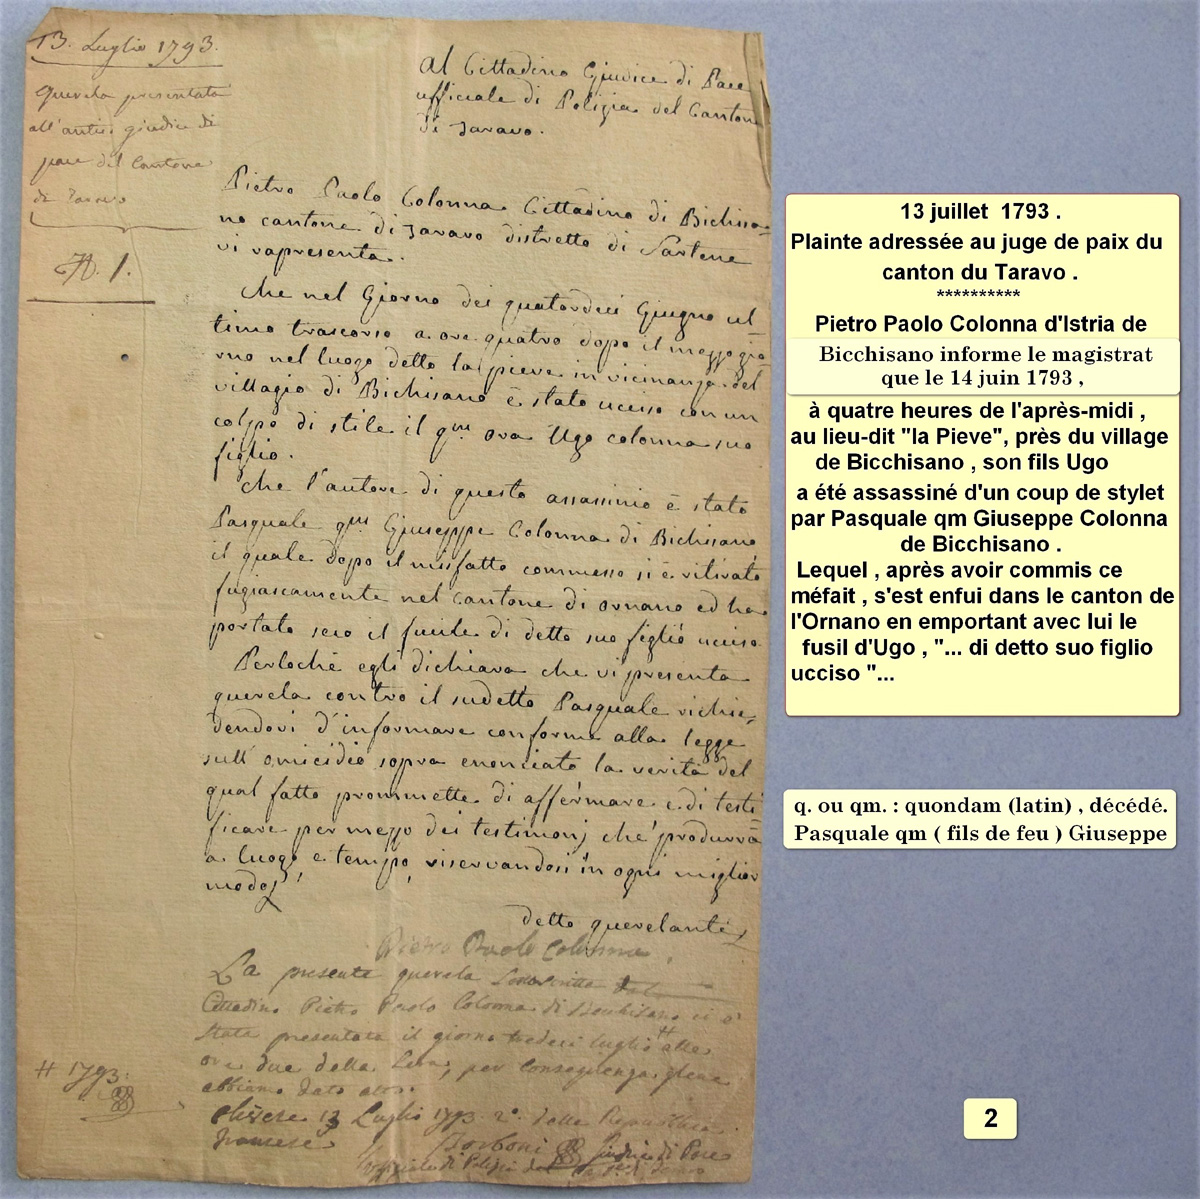 13. Luglio 1793.
Querela presentata
all'antico giudice di
pace del Cantone
di Taravo
A. 1.
Al Cittadino Giudice di Pace
ufficiale di Polizia del Canton
di Taravo.
Pietro Paolo Colonna Cittadino di Bichisa=
no cantone di Taravo distretto di Sartene
vi rapresenta.
Che nel Giorno dei quatordeci Giugno ul=
timo trascorso a ore quatro dopo il mezzogio
rno nel luogo detto la pieve in vicinanza del
villagio di Bichisano è stato ucciso con un
colpo di stile il qm ora Ugo colonna suo
figlio.
Che l'autore di questo assassinio è stato
Pasquale qm Giuseppe Colonna di Bichisano
il quale dopo il misfatto commesso si è ritirato
fugiascamente nel Cantone di Ornano ed ha
portato seco il fucile di detto suo figlio ucciso.
Perloché egli dichiara che vi presenta
querela contro il sudetto Pasquale richie=
dendovi d'informare conforme alla legge
sull'omicidio sopra enonciato la verità del
qual fatto prommette di affermare e di testi
ficare per mezzo dei testimonj che produrrà
a luogo e tempo, riservandosi in ogni miglior
modo
detto querelante
Pietro Paolo Colonna.
La presente querela sottoscritta dal
Cittadino Pietro Paolo Colonna di Bichisano ci è
stata presentata il giorno tredeci luglio # alle
ore due della sera, per conseguenza gliene
abbiamo dato atto.
# 1793:
13 Luglio 1793. 2°. della Republica
francese
Giudice di Pace
ufficiale di Polizia del
13 juillet 1793 .
Plainte adressée au juge de paix du
canton du Taravo .
**********
Pietro Paolo Colonna d'Istria de
Bicchisano informe le magistrat
que le 14 juin 1793 ,
à quatre heures de l'après-midi ,
au lieu-dit "la Pieve", près du village
de Bicchisano , son fils Ugo
a été assassiné d'un coup de stylet
par Pasquale qm Giuseppe Colonna
de Bicchisano .
Lequel , après avoir commis ce
méfait , s'est enfui dans le canton de
l'Ornano en emportant avec lui le
fusil d'Ugo , "... di detto suo figlio
ucciso "...
q. ou qm. : quondam (latin) , décédé.
Pasquale qm ( fils de feu ) Giuseppe
2